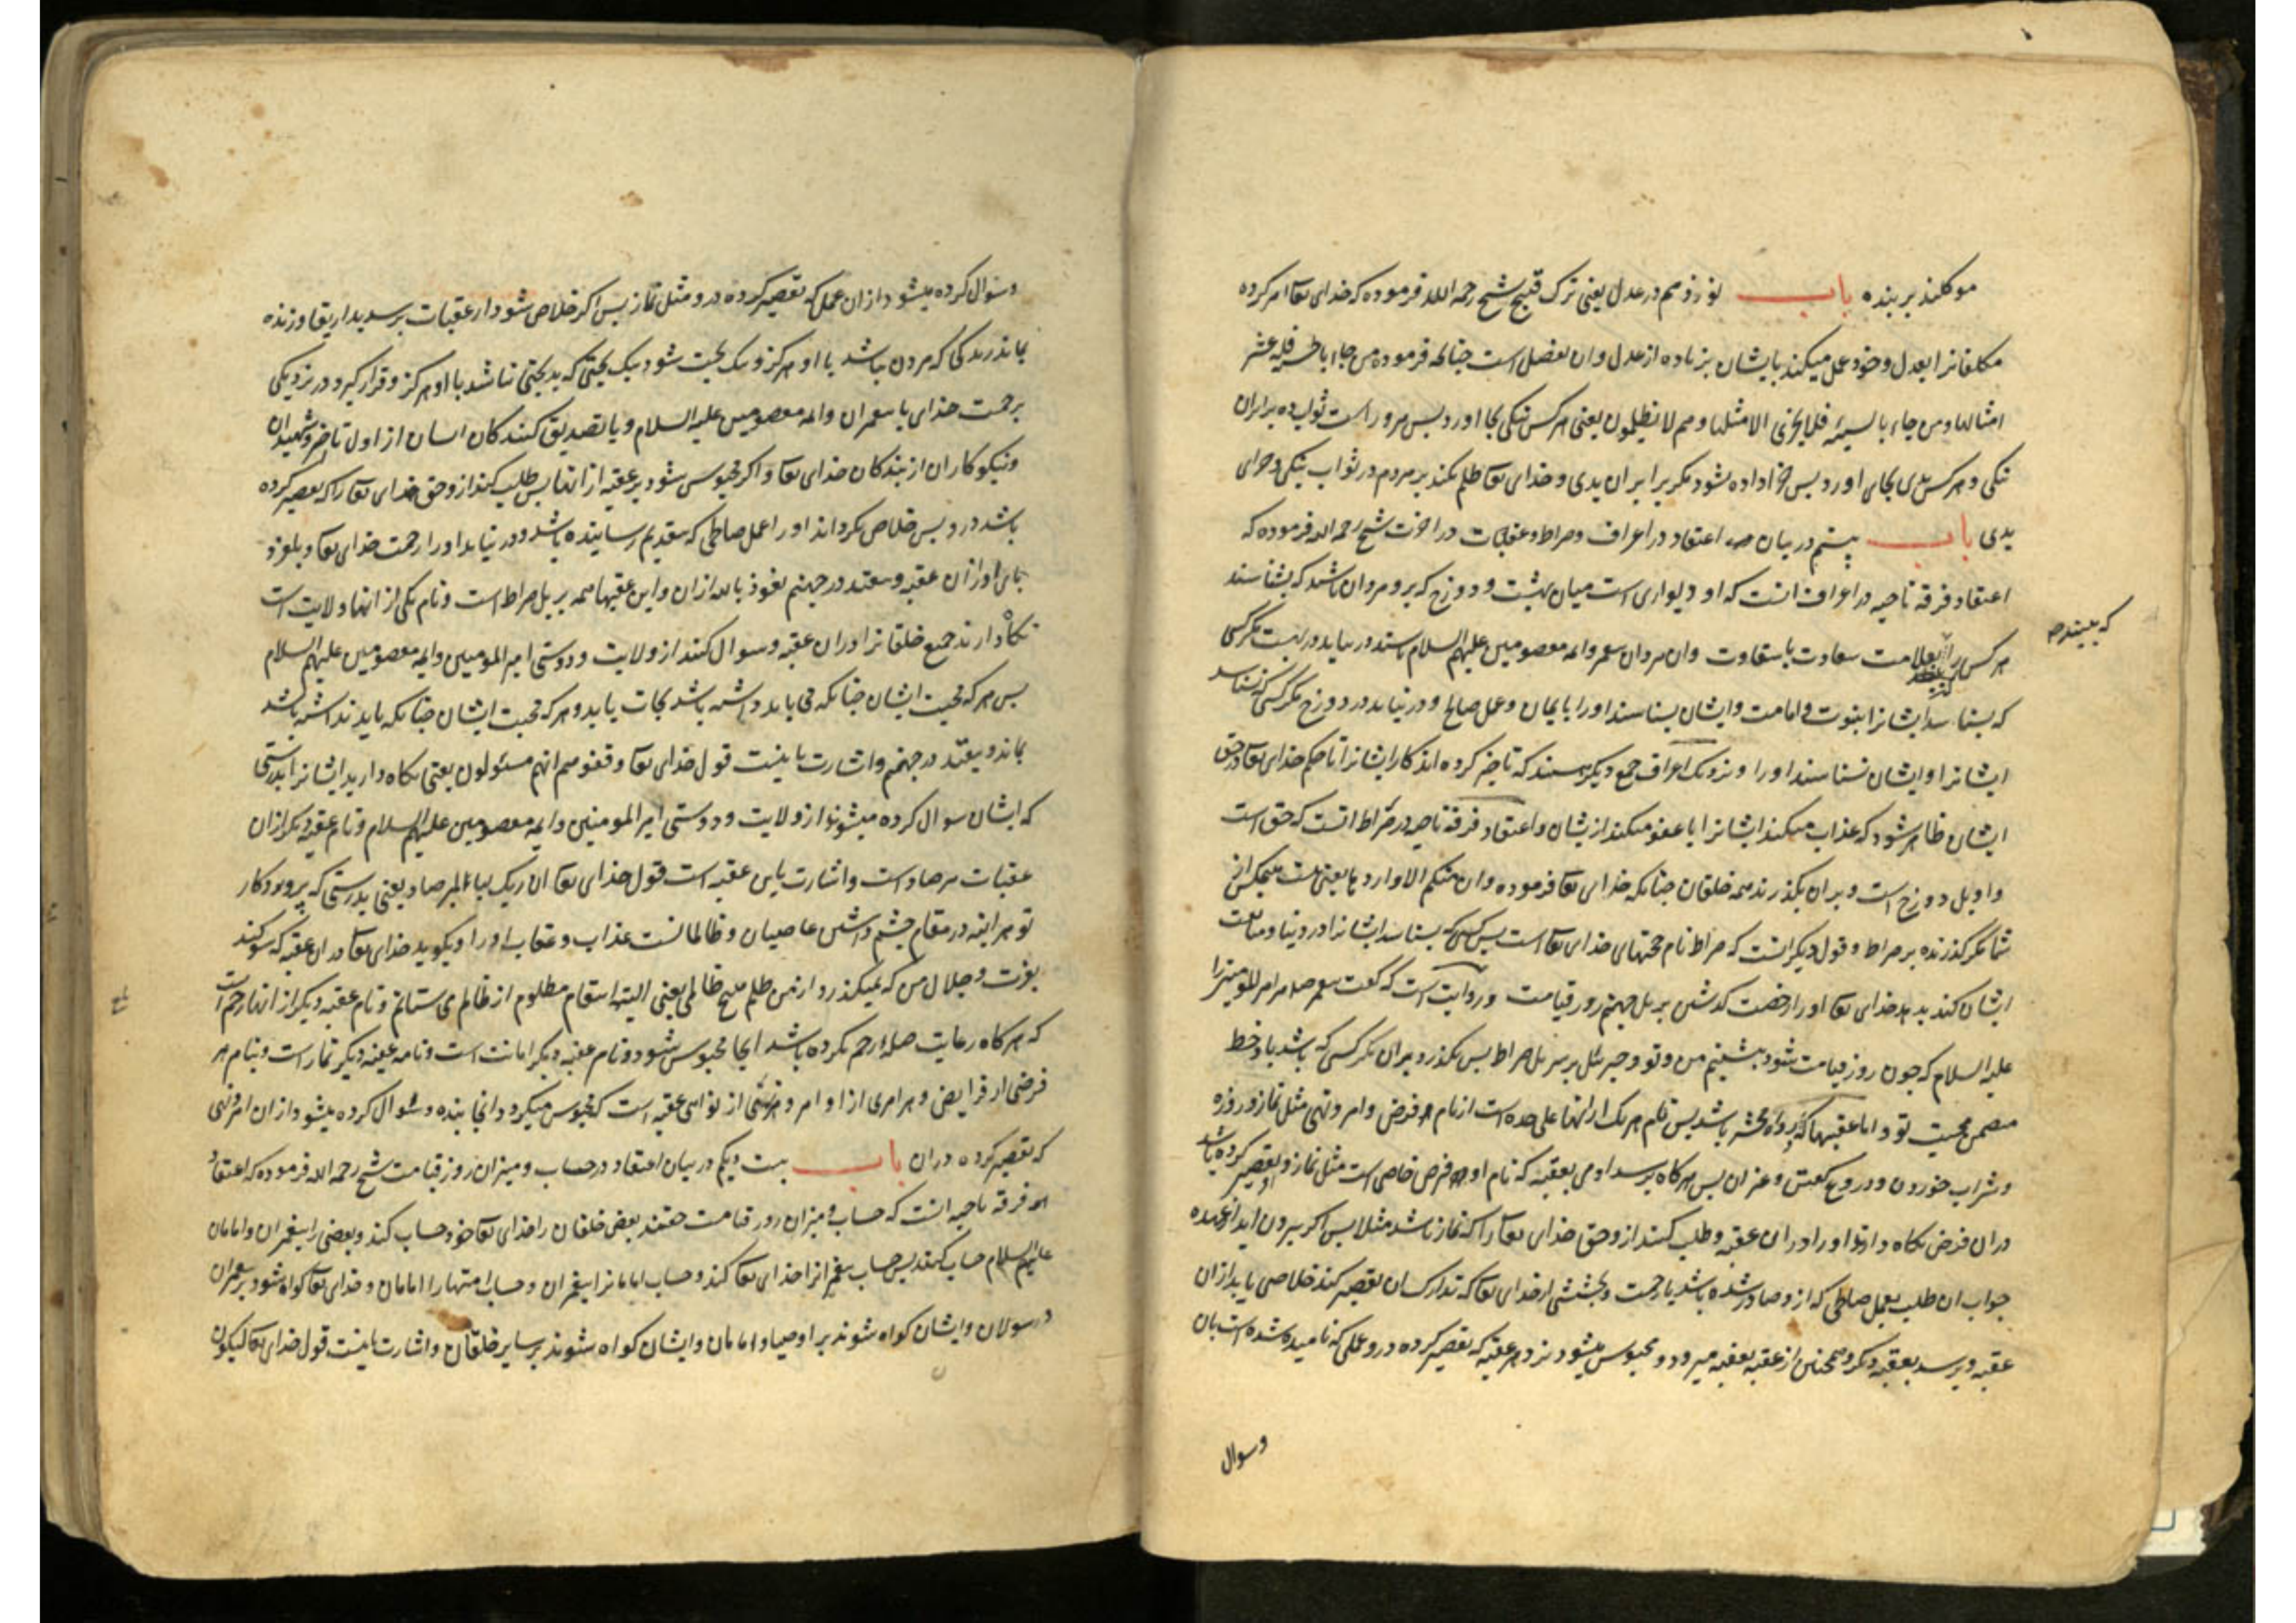 موکلند بر بنده باب نوزدهم در عدل یعنی ترک قبیح شیخ رحمه الله فرموده که خدای تعا امر کرده
مکلفانرا بعدل و خود عمل میکند بایشان بزیاده از عدل و ان تفضل است چنانکه فرموده من جاء بالحسنة فله عشر
امثالها و من جاء بالسیئه فلا یجزی الا مثلها و هم لا یظلمون یعنی هر کس نیکی بجا اورد پس مرور است ثواب ده برابر ان
نیکی و هر کس بدی بجای اورد پس جزا داده نشود مکر برابر ان بدی و خدای تعا ظلم نکند بر مردم در ثواب نیکی و جزای
بدی باب بیستم در بیان اعتقاد در اعراف و صراط و عقبات در اخرت شیخ رحمه الله فرموده که
اعتقاد فرقه ناجیه در اعراف انست که او دیواری است میان بهشت و دوزخ که برو مردان باشند که بشناسند
هر کس را بعلامت سعادت یا شقاوت و ان مردان پیغمبر و ائمه معصومین علیهم السلام باشند در نیاید در بهشت مکر کسی
که بشناسد ایشانرا بنبوت و امامت و ایشان بشناسند او را بایمان و عمل صالح و در نیاید در دوزخ مکر کسی که نشناسد
ایشانرا و ایشان نشناسند او را و نزدیک اعراف جمع دیکر هستند که تاخیر کرده اند کار ایشانرا تا حکم خدای تعا در حق
ایشان ظاهر شود که عذاب میکند ایشانرا یا عفو میکند از یشان و اعتقاد فرقه ناجیه در صراط انست که حق است
و او پل دوزخ است و بر ان بکذرند همه خلقان چنانکه خدای تعا فرموده و ان منکم الا واردها یعنی نیست هیچکس از
شما مکر کذرنده بر صراط و قول دیکر انست که صراط نام حجتهای خدای تعا است پس کسی که بشناسد ایشانرا در دنیا و متابعت
ایشان کند بدهد خدای تعا او را رخصت کذشتن بر پل جهنم روز قیامت و روایت است که کفت پیغمبر صلعم امیر المومنین را
علیه السلام که چون روز قیامت شود بنشینیم من و تو و جبرئیل بر سر پل صراط پس نکذرد بر ان مکر کسی که باشد با او خط
متضمن محبت تو و اما عقبها که بر راه محشر باشد پس نام هر یک از انها علی حده است از نام هر فرض و امر و نهی مثل نماز و روزه
و شراب خوردن و دروغ کفتن و غیر ان پس هر کاه برسد ادمی بعقبه که نام او فرض خاصی است مثل نماز و تقصیر کرده باشد
در ان فرض نکاه دارند او را در ان عقبه و طلب کنند از و حق خدای تعا را که نماز باشد مثلا پس اکر بیرون اید از عهده
جواب ان طلب بعمل صالحی که از و صادر شده باشد یا رحمت و بخششی از خدای تعا که تدارک ان تقصیر کند خلاصی یابد از ان
عقبه و برسد بعقبه دیکر و همچنین از عقبه بعقبه میرود و محبوس میشود نزد هر عقبه که تقصیر کرده در و عملی که نامیده شده است بان
که ببیند
وسوال
و سوال کرده میشود از ان عمل که تقصیر کرده در و مثل نماز پس اکر خلاص شود از عقبات برسد بدار بقا و زنده
بماند زندکی که مردن نباشد با او هرکز و نیک بخت شود نیک بختی که بدبختی نباشد با او هرکز و قرار کیرد در نزدیکی
برحمت خدای با پیغمبران و ائمه معصومین علیه السلام و با تصدیق کنندکان ایشان از اول تا اخر و شهیدان
و نیکوکاران از بندکان خدای تعا و اکر محبوس شود بر عقبه از انها پس طلب کنند از و حق خدای تعا را که تقصیر کرده
باشد در و پس خلاص نکرداند او را عمل صالحی که بتقدیم رسانیده باشد و در نیابد او را رحمت خدای تعا و بلغزد
پای او از ان عقبه و بیفتد در جهنم نعوذ بالله از ان و این عقبها همه بر پل صراط است و نام یکی از انها ولایت است
نکاه دارند جمیع خلقانرا در ان عقبه و سوال کنند از ولایت و دوستی امیر المومنین و ائمه معصومین علیهم السلام
پس هر که محبت ایشان چنانکه می باید داشته باشد نجات یابد و هر که محبت ایشان چنانکه باید نداشته باشد
بماند و بیفتد در جهنم و اشارت باینست قول خدای تعا وقفوهم انهم مسئولون یعنی نکاه دارید ایشانرا بدرستی
که ایشان سوال کرده میشوند از ولایت و دوستی امیر المومنین و ائمه معصومین علیهم السلام و نام عقبه دیکر از ان
عقبات مرصاد است و اشارت باین عقبه است قول خدای تعا ان ربک لبالمرصاد یعنی بدرستی که پروردکار
تو هراینه در مقام چشم داشتن عاصیان و ظالمانست عذاب و عقاب او را و بکوید خدای تعا در ان عقبه که سوکند
بعزت و جلال من که نمیکذرد از من ظلم هیچ ظالمی یعنی البته انتقام مظلوم از ظالم می ستانم و نام عقبه دیکر از انها رحم است
که هر کاه رعایت صله رحم نکرده باشد انجا محبوس شود و نام عقبه دیکر امانت است و نام عقبه دیکر نماز است و بنام هر
فرضی از فرایض و هر امری از اوامر و هر نهی از نواهی عقبه است که محبوس میکردد انجا بنده و سوال کرده میشود از ان امر و نهی
که تقصیر کرده در ان باب بیست و یکم در بیان اعتقاد در حساب و میزان روز قیامت شیخ رحمه الله فرموده که اعتقاد
فرقه ناجیه انست که حساب و میزان روز قیامت حقند بعض خلقان را خدای تعا خود حساب کند و بعضی را پیغمبران و امامان
علیهم السلام حساب کنند پس حساب پیغمبرانرا خدای تعا کند و حساب امامانرا پیغمبران و حساب امتها را امامان و خدای تعا کواه شود بر پیغمبران
و رسولان و ایشان کواه شوند بر اوصیا و امامان و ایشان کواه شوند بر سایر خلقان و اشارت باینست قول خدای تعا لیکون